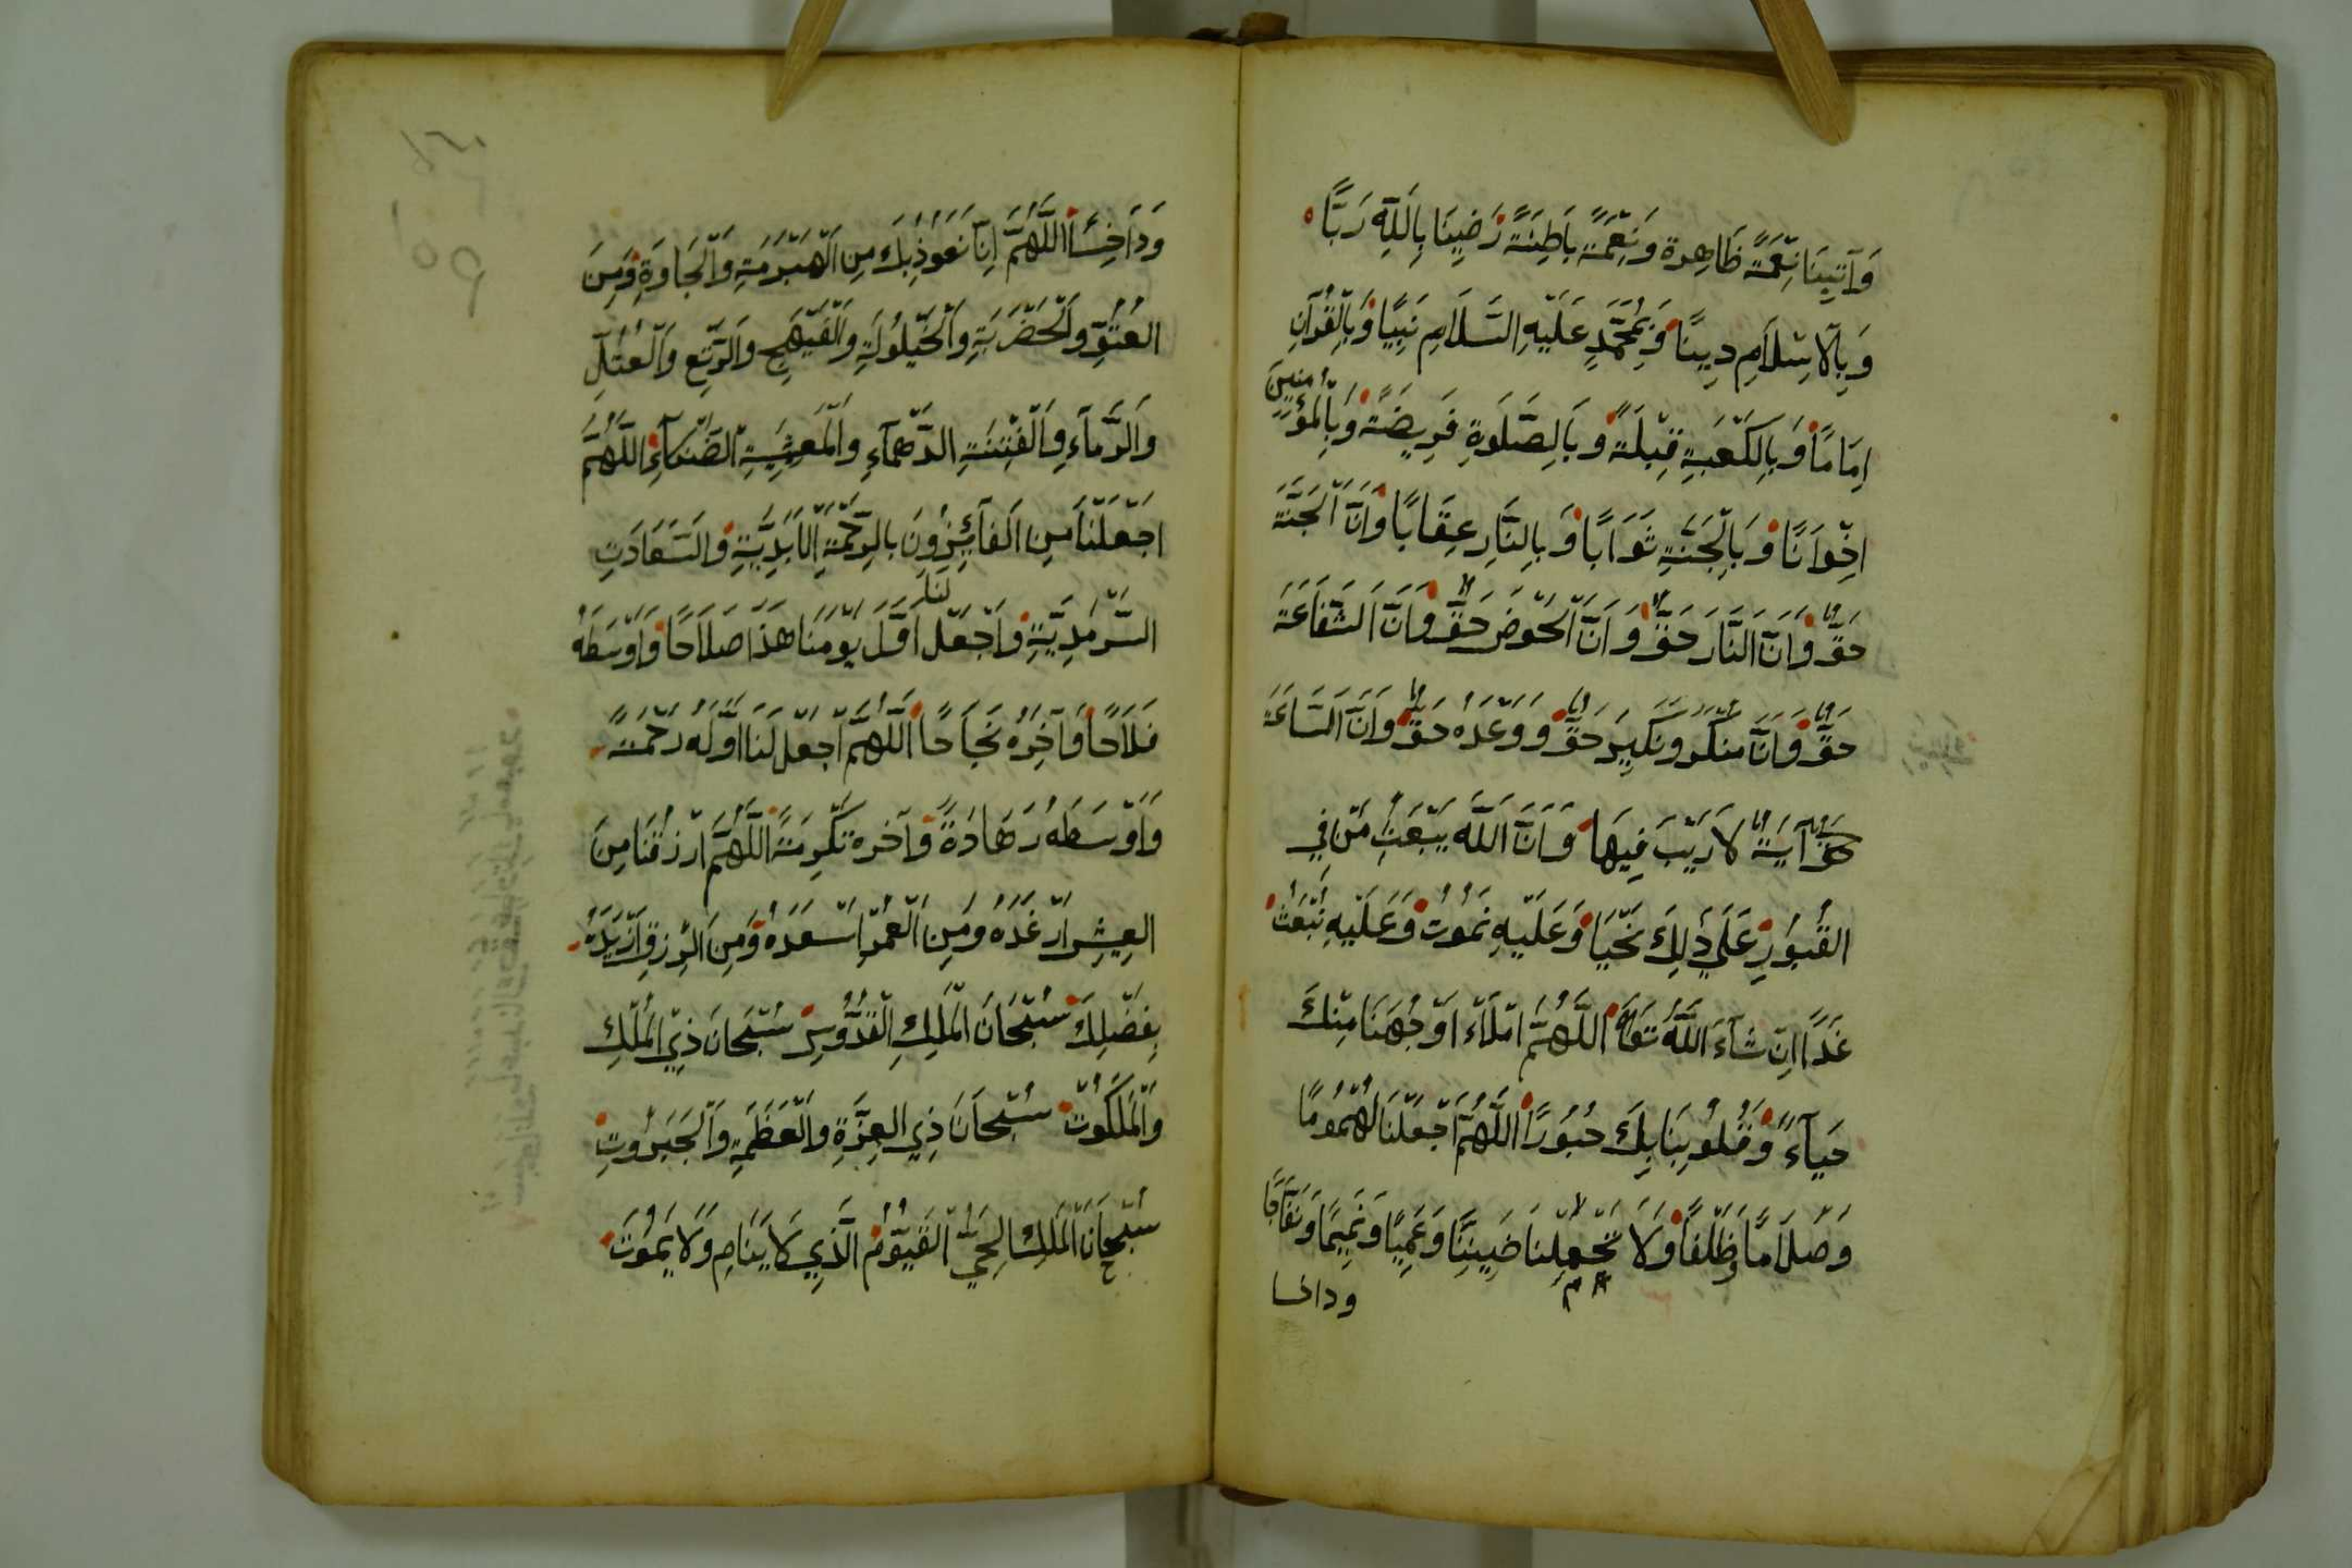 وَآتِينَا نِعْمَةً ظَاهِرَة وَنِعْمَةً بَاطِنَةً رَضِينَا بِاللَّهِ رَبًّا
وَبِالْاِسْلَامِ دِينًا وَبِمُحَمَّدٍ عَلَيْهِ السَّلَامِ نَبِيًّا وَبِالْقُرْآنِ
اِمَامًا وَبِالْكَعْبَةِ قِبْلَةً وَبِالصَّلَوةِ فَرِيضَةً وَبِالْمُؤْمِنِينَ
اِخْوَانًا وَبِالْجَنَّةِ ثَوَابًا وَبِالنَّارِ عِقَابًا وَاَنَّ الْجَنَّةَ
حَقٌّ وَاَنَّ النَّارَ حَقٌّ وَاَنَّ الْحَوْضَ حَقٌّ وَاَنَّ الشَّفَاعَةَ
حَقٌّ وَاَنَّ مُنْكَرَ وَنَكِيرَ حَقٌّ وَوَعْدَهُ حَقٌّ وَاَنَّ السَّاعَةَ
حَقٌّ آتِيَةٌ لَا رَيْبَ فِيهَا وَاَنَّ اللَّهَ يَبْعَثُ مَنْ فِي
الْقُبُورِ عَلَي ذَلِكَ نَحْيَا وَعَلَيْهِ نَمُوتُ وَعَلَيْهِ نُبْعَثُ
غَدًا اِنْ شَآءَ اللَّهُ تَعَالَى اَللَّهُمَّ امْلَاءْ اَوْجُهَنَا مِنْكَ
حَيَآءً وَقُلُوبِنَا بِكَ حُبُورًا اَللَّهُمَّ اجْعَلْنَا لُهْمُومًا
وَصَلَامًا وَظَلْفًا وَلَا تَجْعَلْنَا ضَنِينًا وَعَمِيًا وَنَمِيمًا وَنَفَّاجًا
ودالحسا
وَدَاحِسًا اَللَّهُمَّ اِنَّا نَعُوذُ بِكَ مِنِ الْهَبْرَمَةِ وَالْجَاوَةِ وَمِنَ
الْعُتُوِّ وَالْحَضْرَبَةِ وَالْخَيْلُولَةِ وَالْفَيْهَجِ وَالرَّتَعِ وَالْعُتُلِّ
وَالرَّمَآءِ وَالْفِتْنَةِ الدَّهْمَآءِ وَالْمَعِيشَةِ الضَّنْكَآءِ اَللَّهُمَّ
اجْعَلْنَا مِنِ الْفَآئِزُونَ بِالرَّحْمَةِ الْاَبَدِيَّةِ وَالسَّعَادَتِ
السَّرْمَدِيَّةِ وَاجْعَلْ لَنَا اَوَّلَ يَوْمَنَا هَذَا صَلَاحًا وَاَوْسَطَهُ
فَلَاحًا وَآخِرُهُ نَجَاحًا اَللَّهُمَّ اجْعَلْ لَنَا اَوَّلَهُ رَحْمَةً
وَاَوْسَطَهُ زَهَادَةً وَآخره تَكْرِمَةً اَللَّهُمَّ ارْزُقْنَا مِنَ
الْعِيشِ اَرْغَدَهُ وَمِنِ الْعُمْرِ اَسْعَدَهُ وَمِنَ الرِّزْقِ اَزْيَدَهُ
بِفَضْلِكَ سُبْحَانَ الْمَلِكِ الْقُدُّوسِ سُبْحَانَ ذِي الْمُلْكِ
وَالْمَلَكُوتْ سُبْحَانَ ذِي الْعِزَّةِ وَالْعَظَمَةِ وَالْجَبَرُوتِ
سُبْحَانَ الْمَلِكِ الْحَيُّ الْقَيُّومُ الَّذِي لَا يَنَامِ وَلَا يَمُوتَ